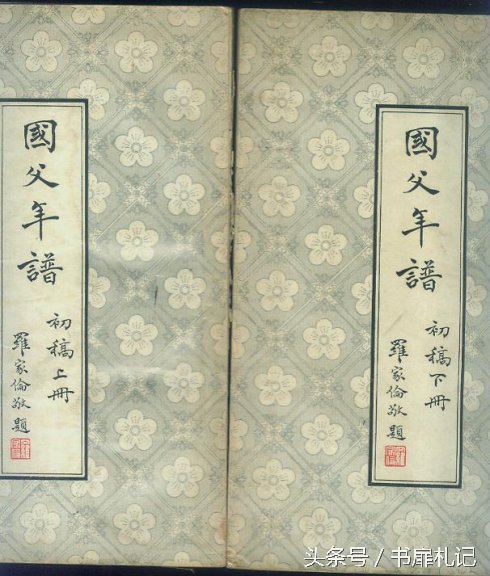 國父年譜
初稿上冊
羅家倫敬題
國父年譜
初稿下冊
羅家倫敬題
头条号／书扉札记